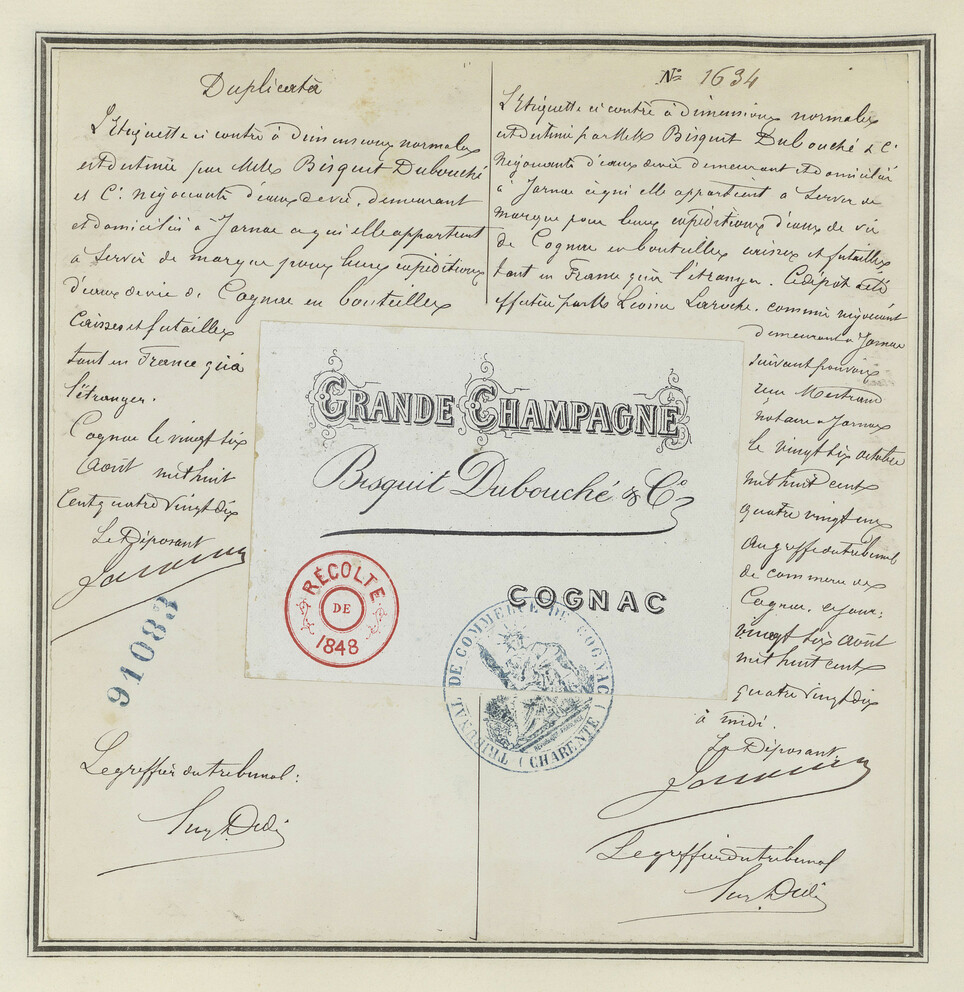 Duplicata
L'Etiquette ci contre à dimensions normales
est destinée par MM Bisquit Dubouché
et Cie Négociants d'eaux de vie, demeurant
et domiciliés à Jarnac a qui elle appartient
à servir de marque pour leurs expéditions
d'eaux de vie de Cognac en bouteilles
Caisses et futailles
tant en France qu'à
l'étranger.
Cognac le vingt six
Août mil huit
Cent quatre vingt dix
Le Déposant
91083
Le greffier du tribunal:
No 1634
L'Etiquette ci contre à dimensions normales
est destinée par MM Bisquit Dubouché & Cie
Négociants d'eaux de vie demeurant et domiciliés
à Jarnac à qui elle appartient à servir de
marque pour leurs expéditions d'eaux de vie
de Cognac en bouteilles caisses et futailles,
tant en France qu'à l'étranger. Ce dépôt a été
effectué par M Laroche, commis négociant
demeurant à Jarnac
suivant pouvoir
notaire à Jarnac
le vingt six octobre
mil huit cent
quatre vingt
au greffe du tribunal
de commerce de
Cognac, ce jour:
vingt six août
mil huit cent
quatre vingt dix
à midi.
Le Déposant
Le greffier du tribunal
GRANDE CHAMPAGNE
Bisquit Dubouché & Co
COGNAC
RÉCOLTE
DE
1848
TRIBUNAL DE COMMERCE DE COGNAC
(CHARENTE)
RÉPUBLIQUE FRANÇAISE